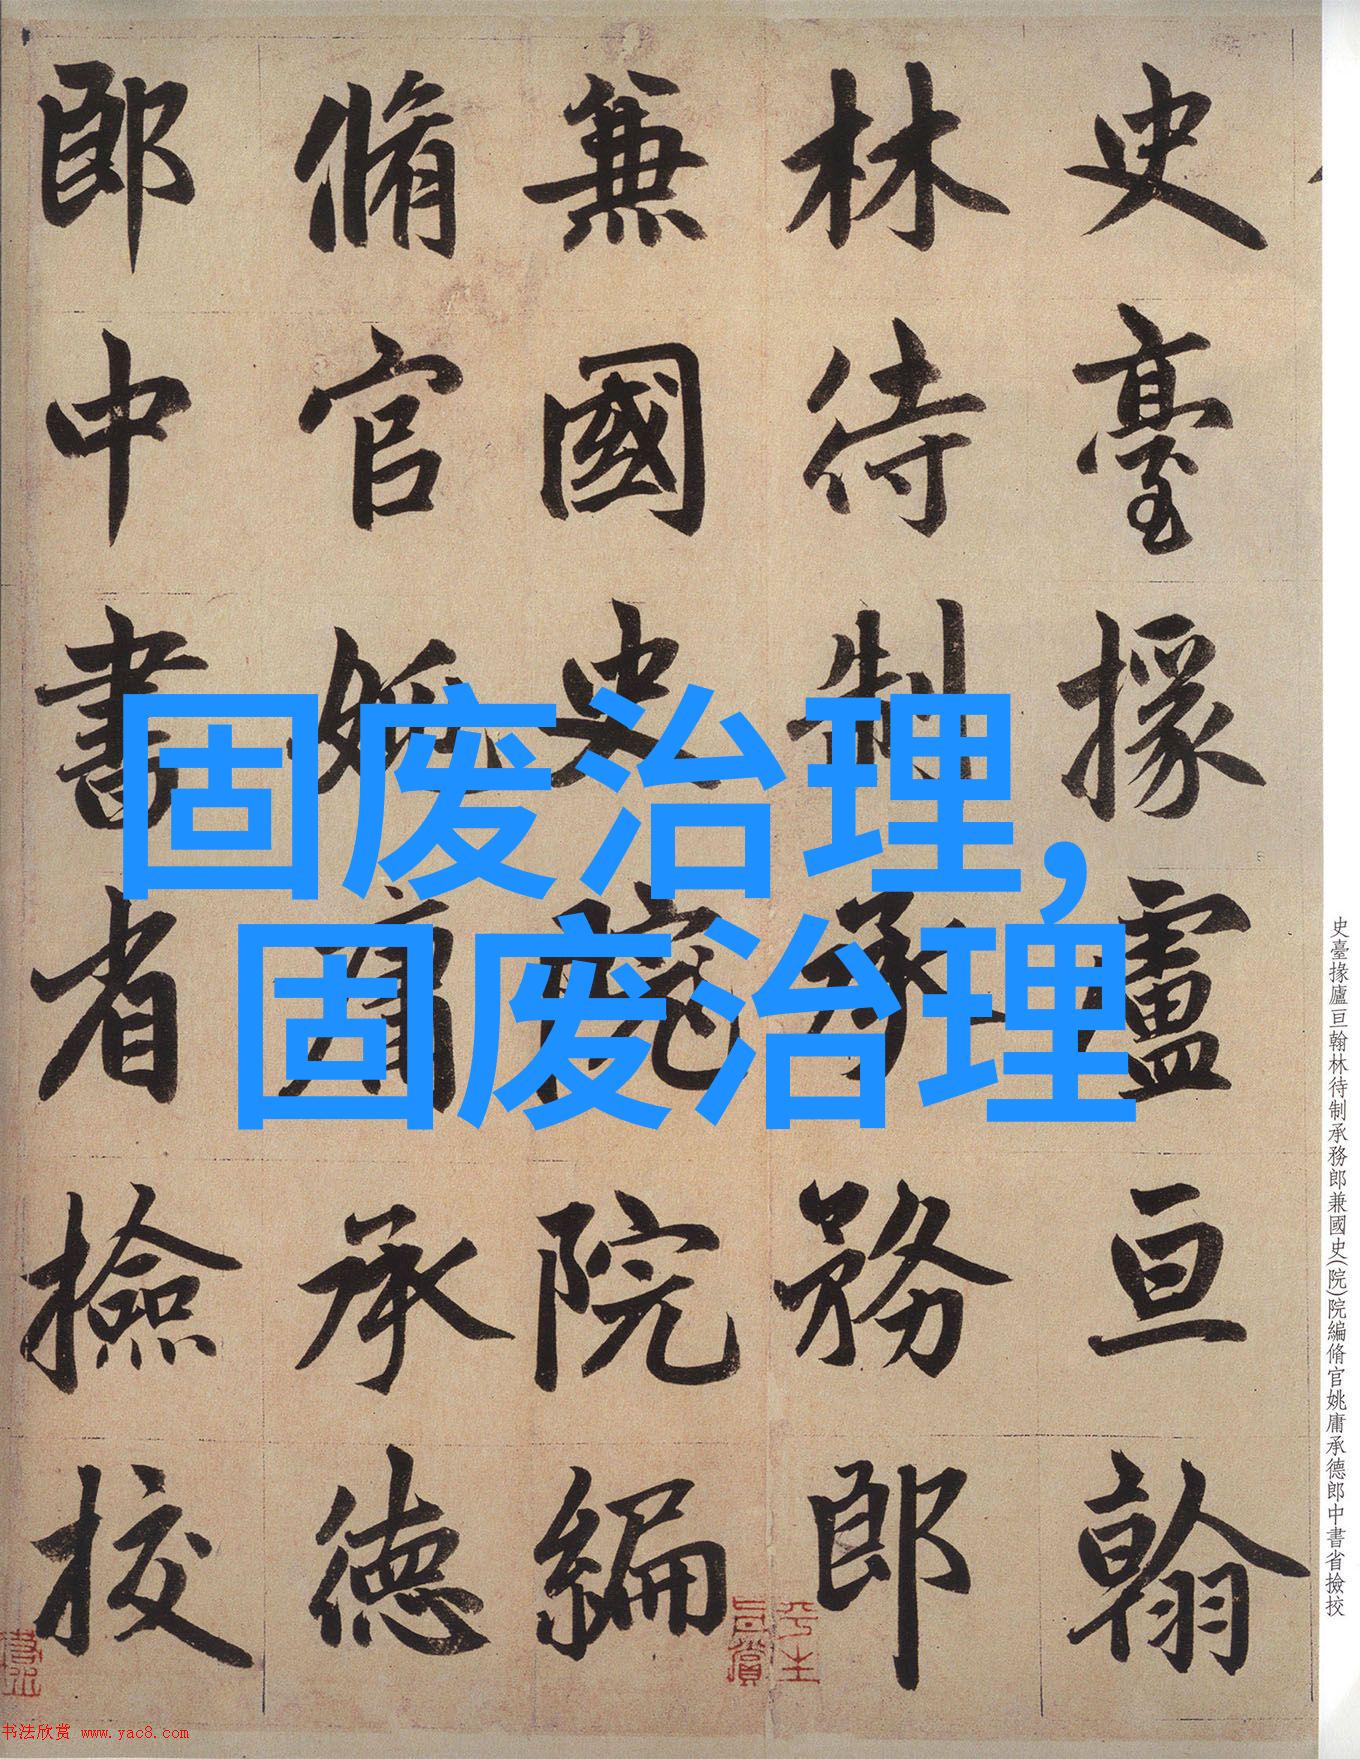 固废治理，
固废治理
史臺掾盧亘翰
林待制承務郎
兼國史院院編
脩官姚庸承德
郎中書省撿挍
史臺掾廬亘翰林待制承務郎兼國史(院)院編脩官姚庸承德郎中書省撿挍
平生
真賞
书法欣赏 www.yac8.com